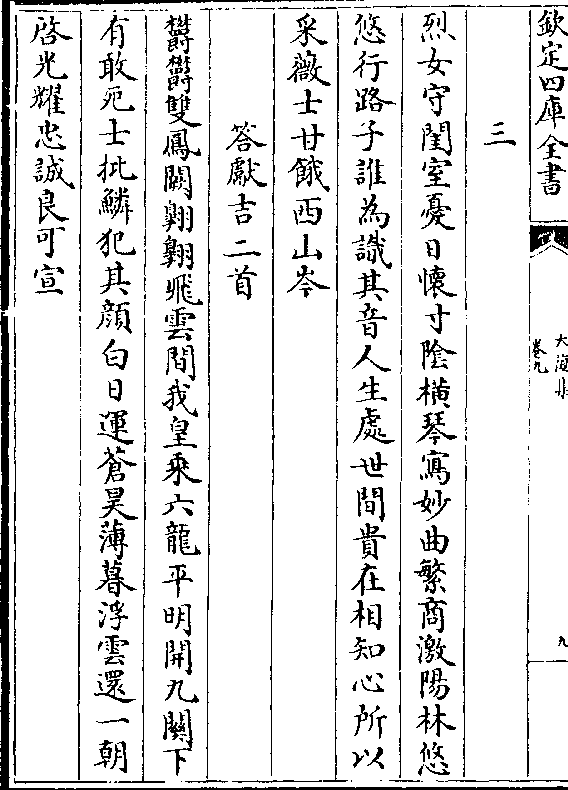 欽定四庫全書
大復集
卷九
九
三
烈女守閨室憂日懷寸陰橫琴寫妙曲繁商激陽林悠
悠行路子誰為識其音人生處世間貴在相知心所以
采薇士甘餓西山岑
答獻吉二首
鬱鬱雙鳳闕翱翱飛雲間我皇乘六龍平明開九關下
有敢死士批鱗犯其顔白日運蒼昊薄暮浮雲還一朝
啓光耀忠誠良可宣